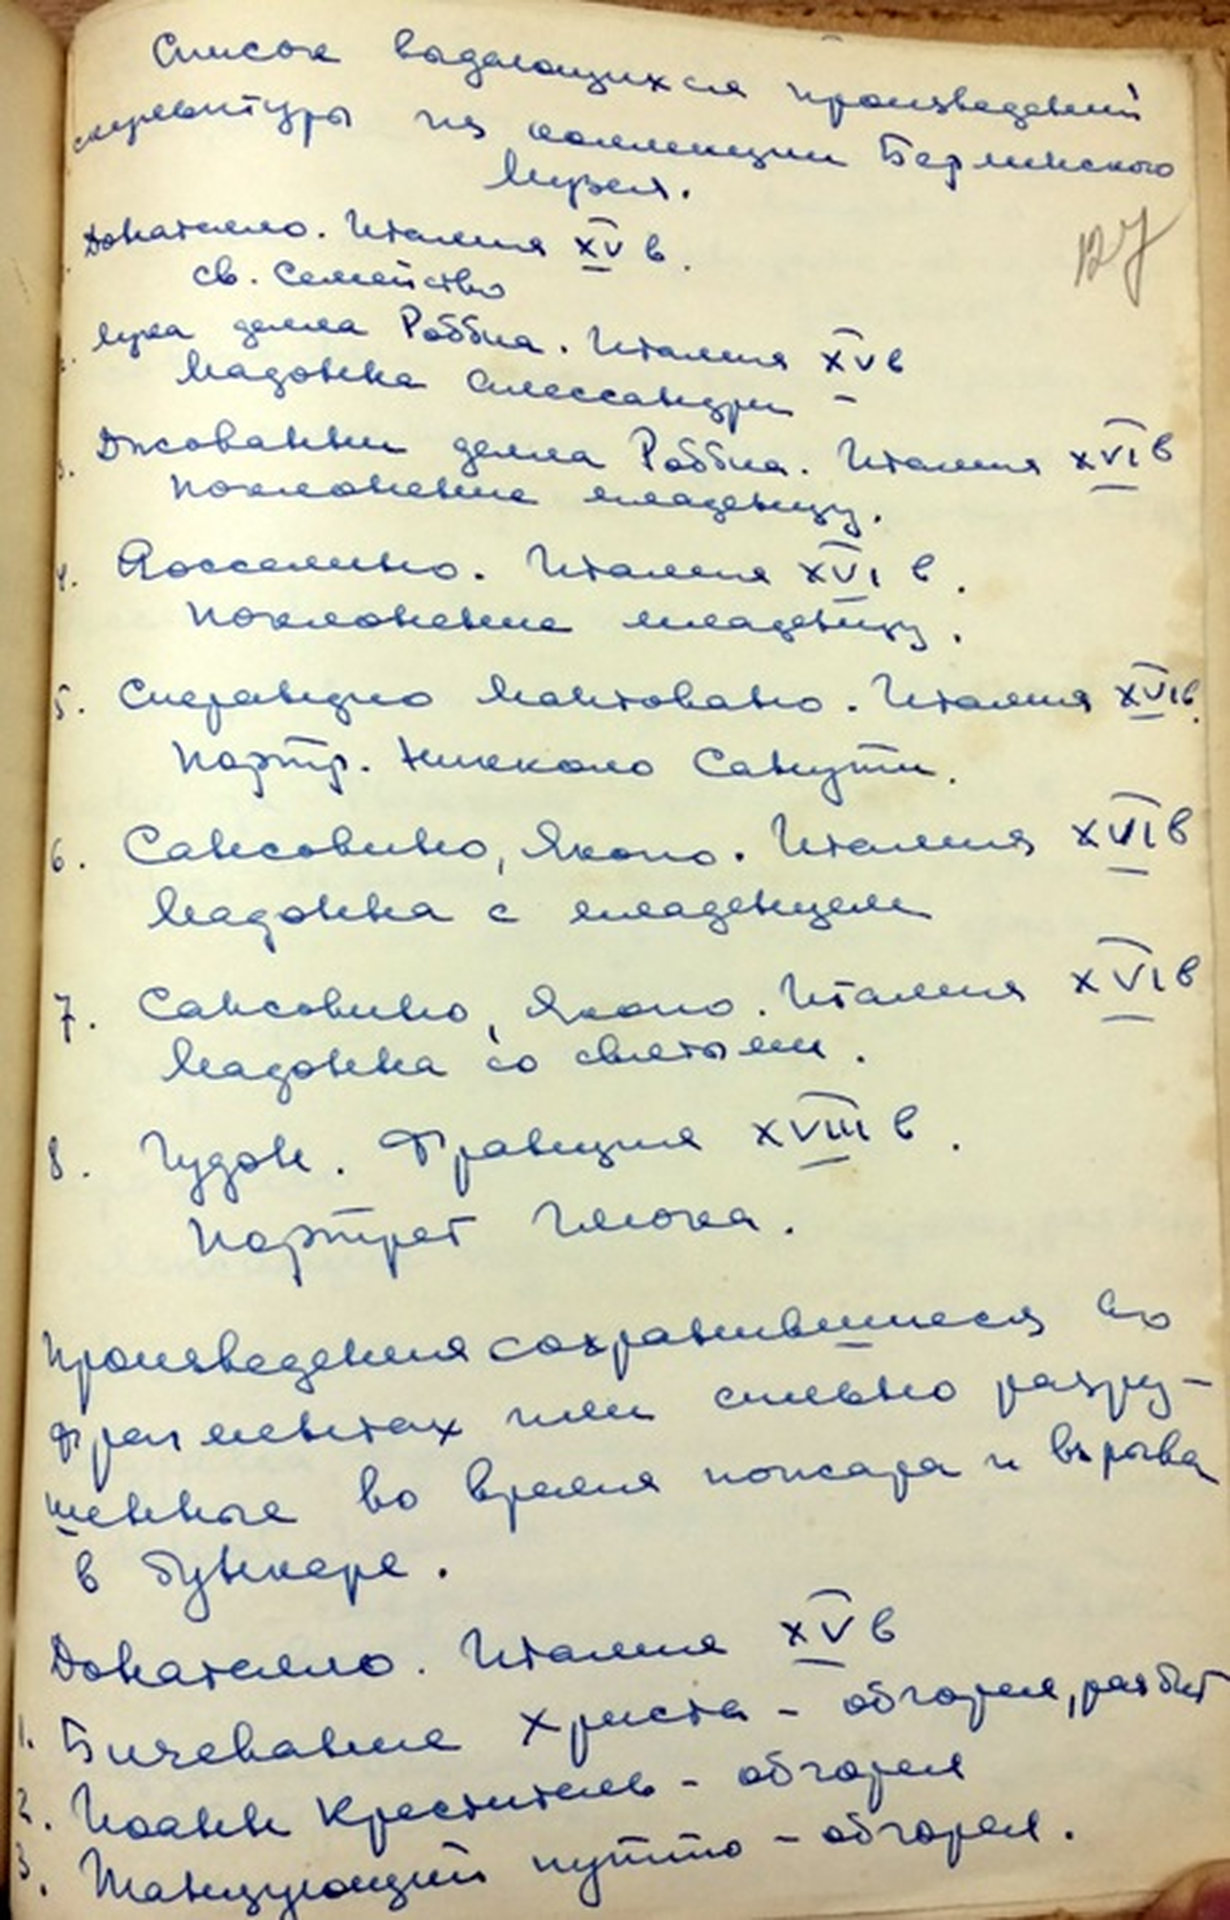 Список выдающихся произведений
скульптуры из коллекции Берлинского
Музея.
127
1. Донателло. Италия XV в.
св. Семейство
2. Лука делла Роббиа. Италия XV в
Мадонна Алессандри
3. Джованни делла Роббиа. Италия XVI в
Поклонение младенцу.
4. Росселино. Италия XVI в.
Поклонение младенцу.
5. Сперандио Мантовано. Италия XVI в.
Портр. Никколо Санути.
6. Сансовино, Якопо. Италия XVI в
Мадонна с младенцем
7. Сансовино, Якопо. Италия XVI в
Мадонна со святыми.
8. Гудон. Франция XVIII в.
Портрет Глюка.
Произведения сохранившиеся во
фрагментах или сильно разру-
шенные во время пожара и взрыва
в бункере.
Донателло. Италия XV в
1. Бичевание Христа - обгорел, разбит
2. Иоанн Креститель - обгорел
3. Танцующий путто - обгорел.